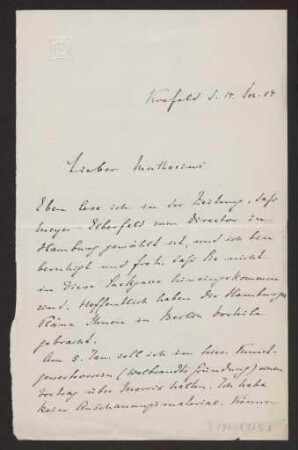 Krefeld d. 14. Dez. 04
Lieber Muthesius
Eben lese ich in der Zeitung, daß
Meyer Elberfeld zum Director in
Hamburg gewählt ist, und ich bin
beruhigt und froh, daß Sie nicht
in diese Sackgasse hineingekommen
sind. Hoffentlich haben die Hamburger
Pläne Ihnen in Berlin Vorteile
gebracht.
Am 5. Jan. soll ich im
gewerbeverein (Gründung) einen
Vortrag über Morris halten. Ich habe
kein Anschauungsmaterial. Können